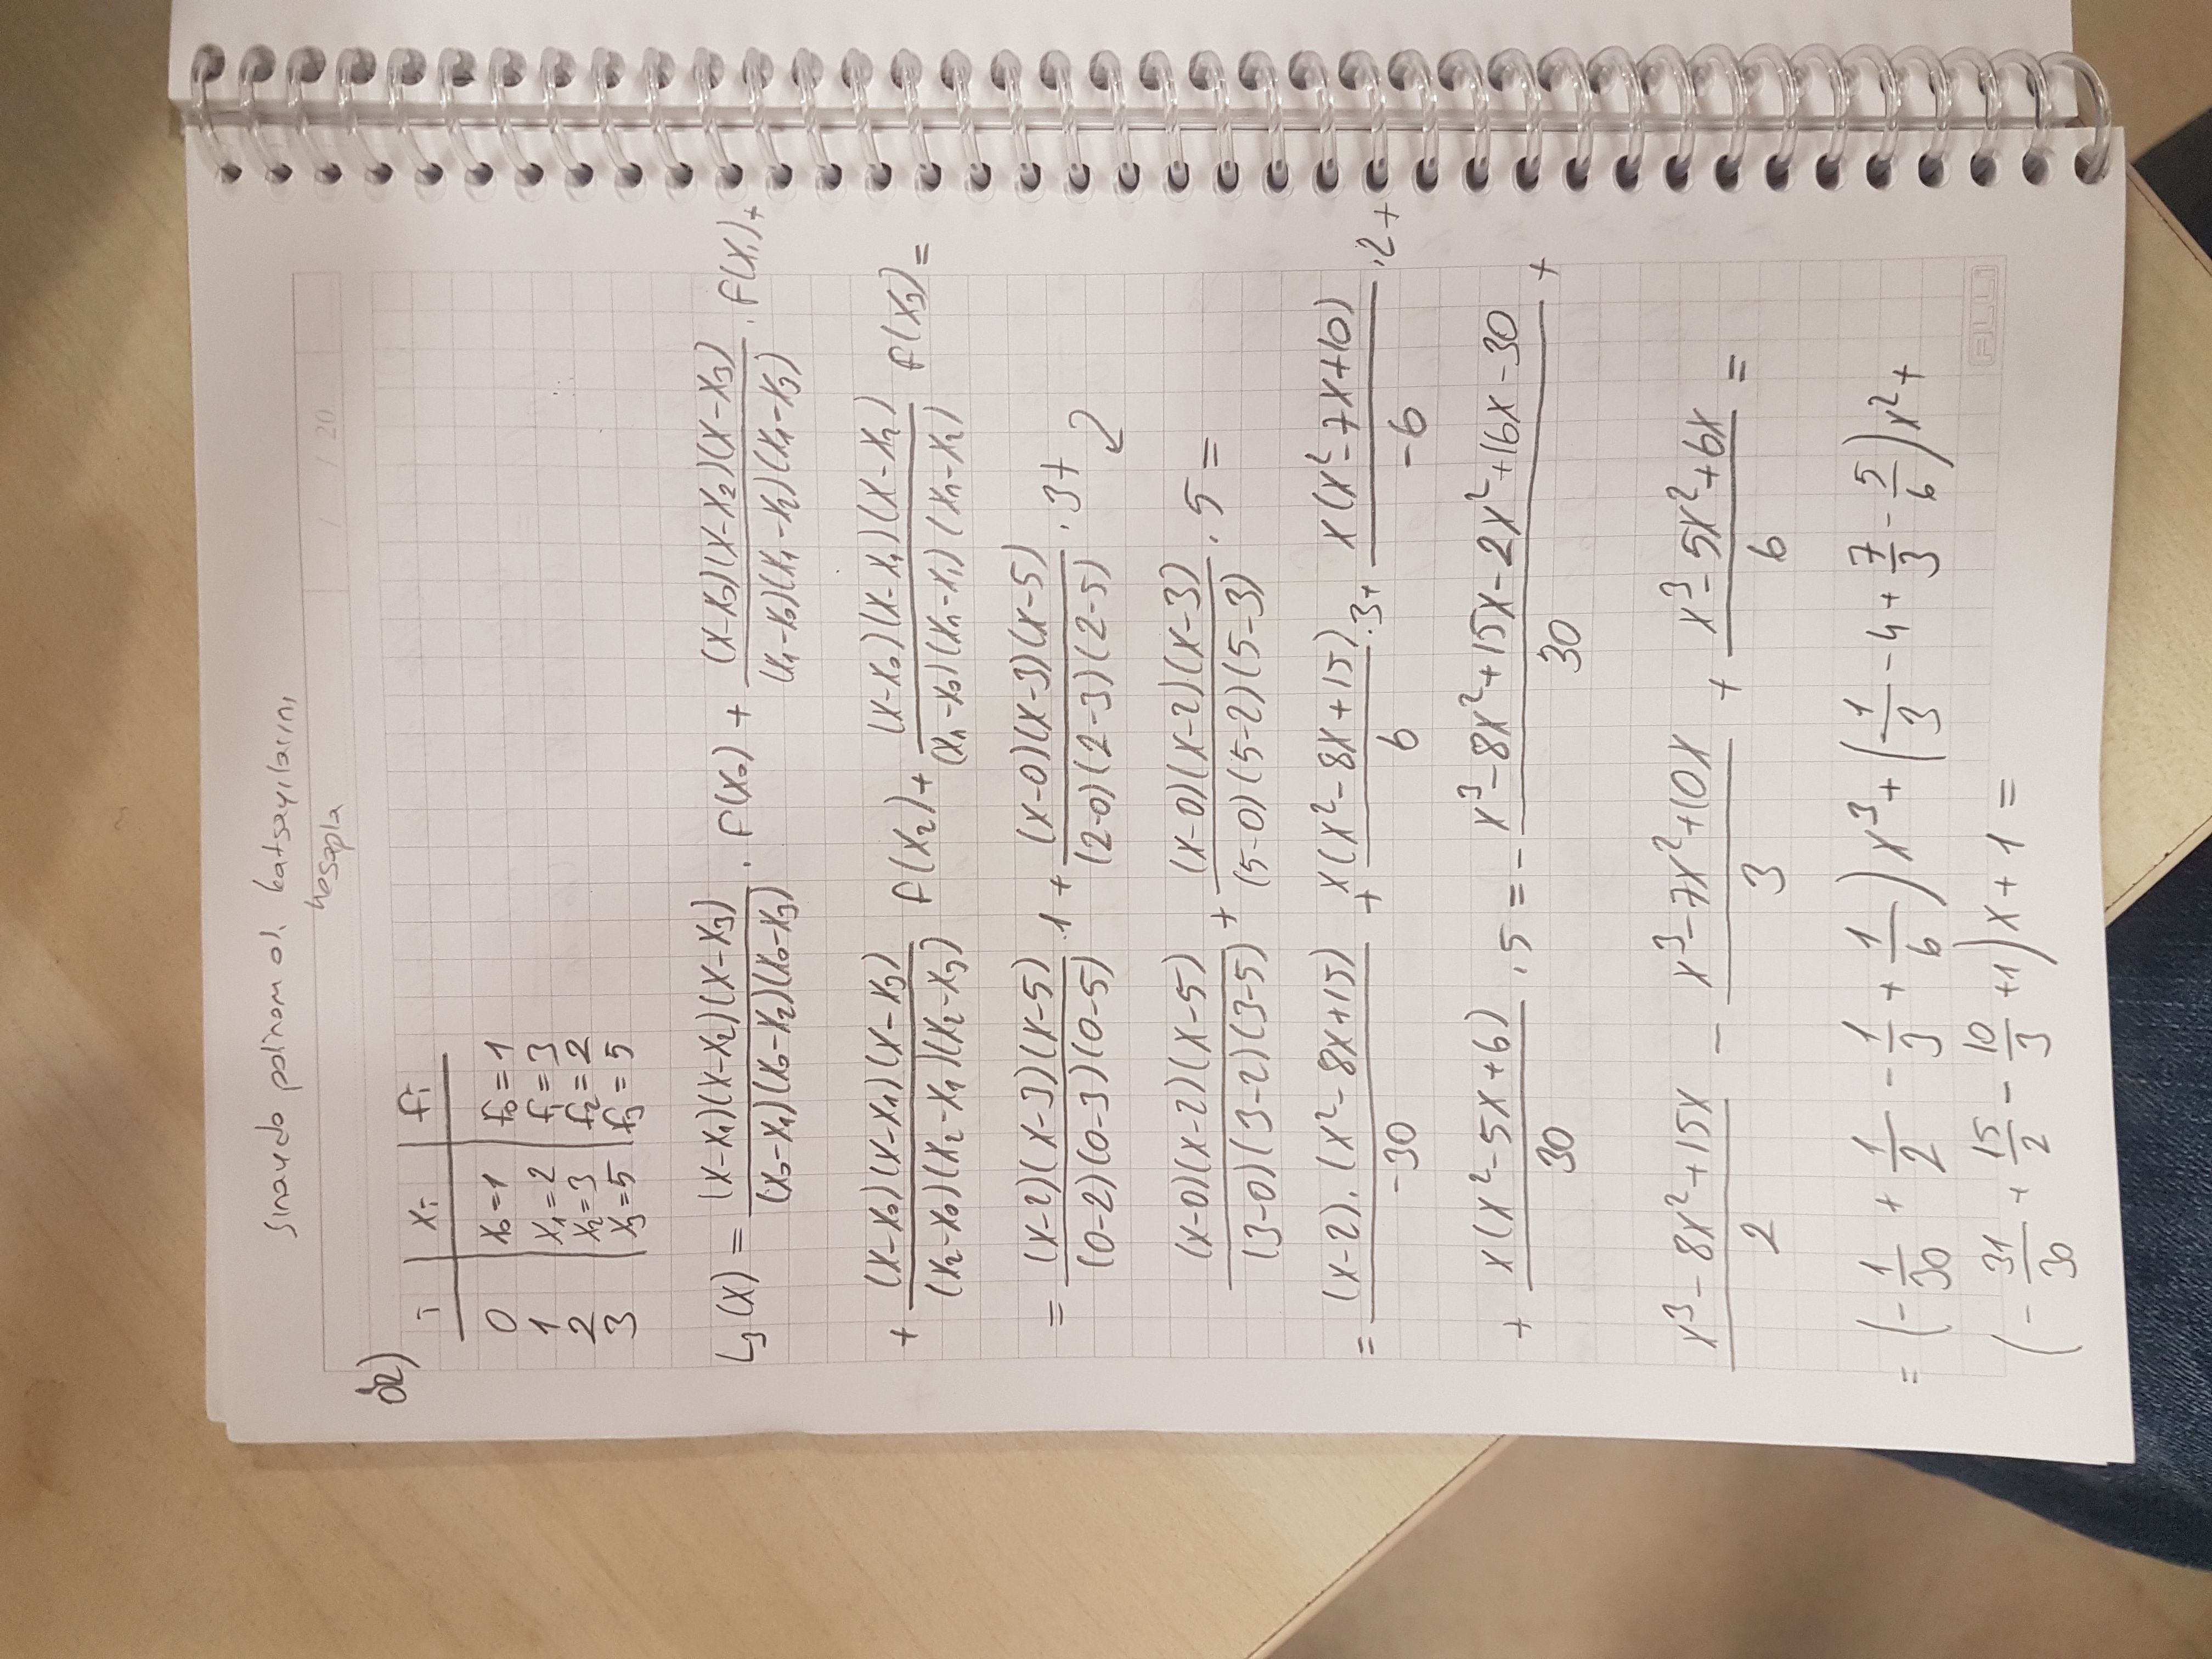 Sınavda polinom ol. katsayılarını
hesapla
/ / 20
ör)
i | xi | fi
0 | x₀=1 | f₀=1
1 | x₁=2 | f₁=3
2 | x₂=3 | f₂=2
3 | x₃=5 | f₃=5
L₃(x) = (x-x₁)(x-x₂)(x-x₃)/(x₀-x₁)(x₀-x₂)(x₀-x₃) . f(x₀) + (x-x₀)(x-x₂)(x-x₃)/(x₁-x₀)(x₁-x₂)(x₁-x₃) . f(x₁)+
+ (x-x₀)(x-x₁)(x-x₃)/(x₂-x₀)(x₂-x₁)(x₂-x₃) f(x₂)+ (x-x₀)(x-x₁)(x-x₂)/(xn-x₀)(xn-x₁)(xn-x₂) f(x₃)=
= (x-2)(x-3)(x-5)/(0-2)(0-3)(0-5) .1 + (x-0)(x-3)(x-5)/(2-0)(2-3)(2-5) . 3+
(x-0)(x-2)(x-5)/(3-0)(3-2)(3-5) + (x-0)(x-2)(x-3)/(5-0)(5-2)(5-3) . 5 =
= (x-2).(x²-8x+15)/-30 + x(x²-8x+15)/6 .3+ x(x²-7x+10)/-6 .2+
+ x(x²-5x+6)/30 .5 = - x³-8x²+15x-2x²+16x-30/30 +
x³-8x²+15x/2 - x³-7x²+10x/3 + x³-5x²+6x/6 =
= (-1/30 + 1/2 - 1/3 + 1/6)x³+(1/3 -4+ 7/3 - 5/6)x²+
(-31/30 + 15/2 - 10/3 +1)x+1 =
ALLi